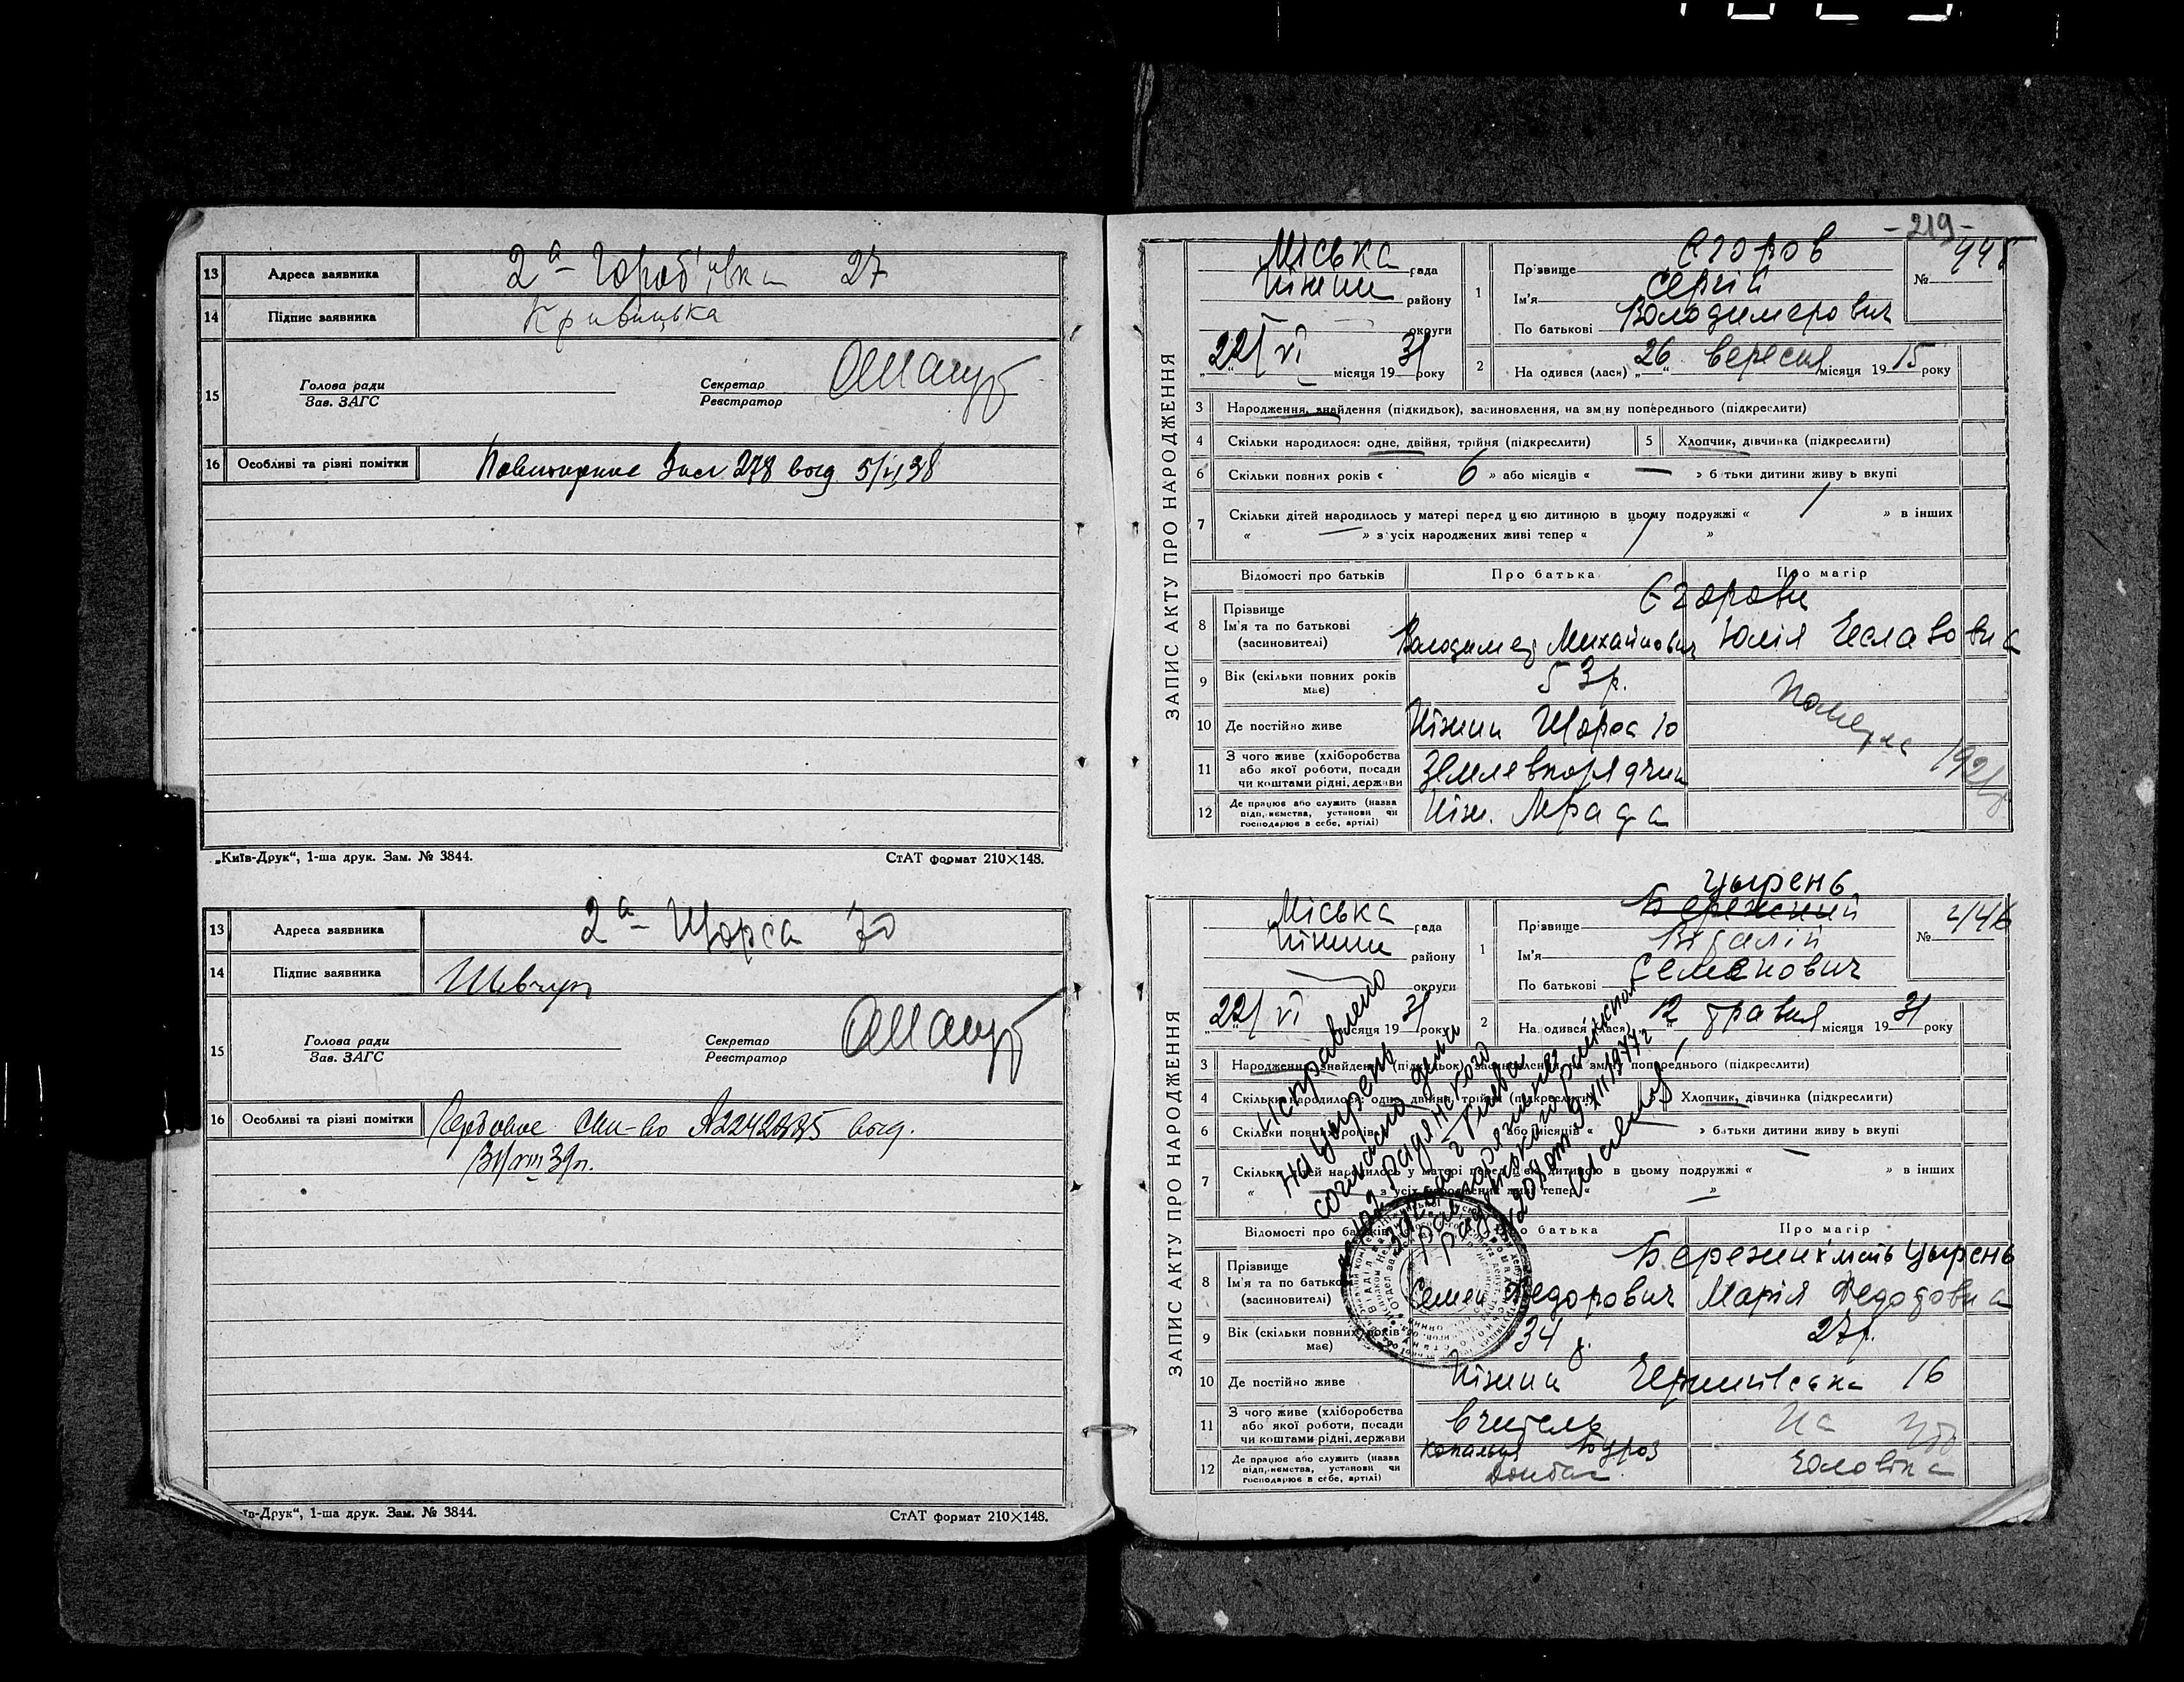 13 Адреса заявника 2а Гороб'ївка 27
14 Підпис заявника Кривицька
15 Голова ради
Зав. ЗАГС
Секретар
Реєстратор
16 Особливі та різні помітки Повторное 278 5/VI 38
„Київ-Друк“, 1-ша друк. Зам. № 3844. СтАТ формат 210×148.
13 Адреса заявника 2а Щорса 30
14 Підпис заявника Шевчук
15 Голова ради
Зав. ЗАГС
Секретар
Реєстратор
16 Особливі та різні помітки
31/VIII 39
їв-Друк“, 1-ша друк. Зам. № 3844. СтАТ формат 210×148.
-219-
ЗАПИС АКТУ ПРО НАРОДЖЕННЯ
Міська рада
Ніжин району
округи
„22“ VI місяця 1931 року
1 Прізвище Єгоров
Ім'я Сергій
По батькові Володимерович
№ 445
2 На одився (лася) „26“ вересня місяця 1915 року
3 Народження, знайдення (підкидьок), засиновлення, на зміну попереднього (підкреслити)
4 Скільки народилося: одне, двійня, трійня (підкреслити)
5 Хлопчик, дівчинка (підкреслити)
6 Скільки повних років « 6 » або місяців « — » б тьки дитини живу ь вкупі
7 Скільки дітей народилось у матері перед цією дитиною в цьому подружжі « / » в інших
« — » з усіх народжених живі тепер « / »
Відомості про батьків Про батька Про матір
8 Прізвище Єгорови
Ім'я та по батькові Володимер Михайлович Юлія
(засиновителі)
9 Вік (скільки повних років має) 53 р.
Померла 1921
10 Де постійно живе Ніжин Щорса 10
11 З чого живе (хліборобства або якої роботи, посади чи коштами рідні, держави Землевпорядчик
12 Де працює або служить (назва підприємства, установи чи господарює в себе, артілі) Ніж. Мрада
ЗАПИС АКТУ ПРО НАРОДЖЕННЯ
Цырень
Міська рада
Ніжин району
округи
„22“ VI місяця 1931 року
1 Прізвище Бережний
Ім'я Віталій
По батькові Семенович
№ 446
2 На одився (лася) „12“ травня місяця 1931 року
3 Народження, знайдення (підкидьок), засиновлення, на зміну попереднього (підкреслити)
4 Скільки народилося: одне, двійня, трійня (підкреслити)
Хлопчик, дівчинка (підкреслити)
6 Скільки повних років або місяців « » батьки дитини живу ь вкупі
7 Скільки дітей народилось у матері перед цією дитиною в цьому подружжі « — » в інших
« з усіх народжених живі тепер « — »
Исправлено
на Цырень
согласно дела
от 9.XII 1977 г
Відомості про батьків Про батька Про матір
8 Прізвище Бережні мать Цырень
Ім'я та по батькові Семен Федорович Марія Федотовна
(засиновителі)
9 Вік (скільки повних років має) 34 р. 27 р.
10 Де постійно живе Ніжин Чернигівська 16
11 З чого живе (хліборобства або якої роботи, посади чи коштами рідні, держави вчитель На утр
12 Де працює або служить (назва підприємства, установи чи господарює в себе, артілі) Донбас чоловіка